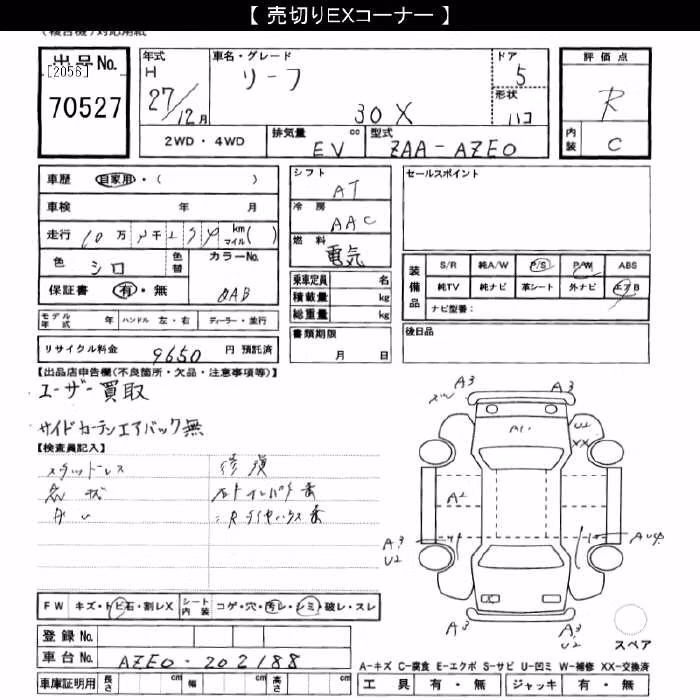 【 売切りEXコーナー 】
出品No.
[2056]
70527
年式
H
27/12月
車名・グレード
リーフ
30X
ドア
5
形状
ハコ
2WD・4WD
排気量 cc
EV
型式
ZAA-AZE0
評価点
R
内装
C
車歴 自家用・( )
車検 年 月
走行 10万 千 km マイル( )
色 シロ 色替
カラーNo.
QAB
保証書 有・無
モデル年式 年 ハンドル 左・右 ディーラー・並行
リサイクル料金 9650 円 預託済
シフト
AT
冷房
AAC
燃料
電気
乗車定員 名
積載量 kg
総重量 kg
書類期限
月 日
セールスポイント
装備品
S/R 純A/W P/S P/W ABS
純TV 純ナビ 革シート 外ナビ エアB
ナビ型番：
後日品
【出品店申告欄(不良箇所・欠品・注意事項等)】
ユーザー買取
サイドカーテンエアバック無
【検査員記入】
スタッドレス 修復
FW キズ・トビ石・割レX シート内装 コゲ・穴・汚レ・シミ・破レ・スレ
登録No.
車台No. AZE0-202188
車庫証明用 長さ cm 幅 cm 高さ cm
A3
A3
U2
XX
A2
A3
U2
A3
A3
U2
スペア
A-キズ C-腐食 E-エクボ S-サビ U-凹ミ W-補修 XX-交換済
工具 有・無 ジャッキ 有・無